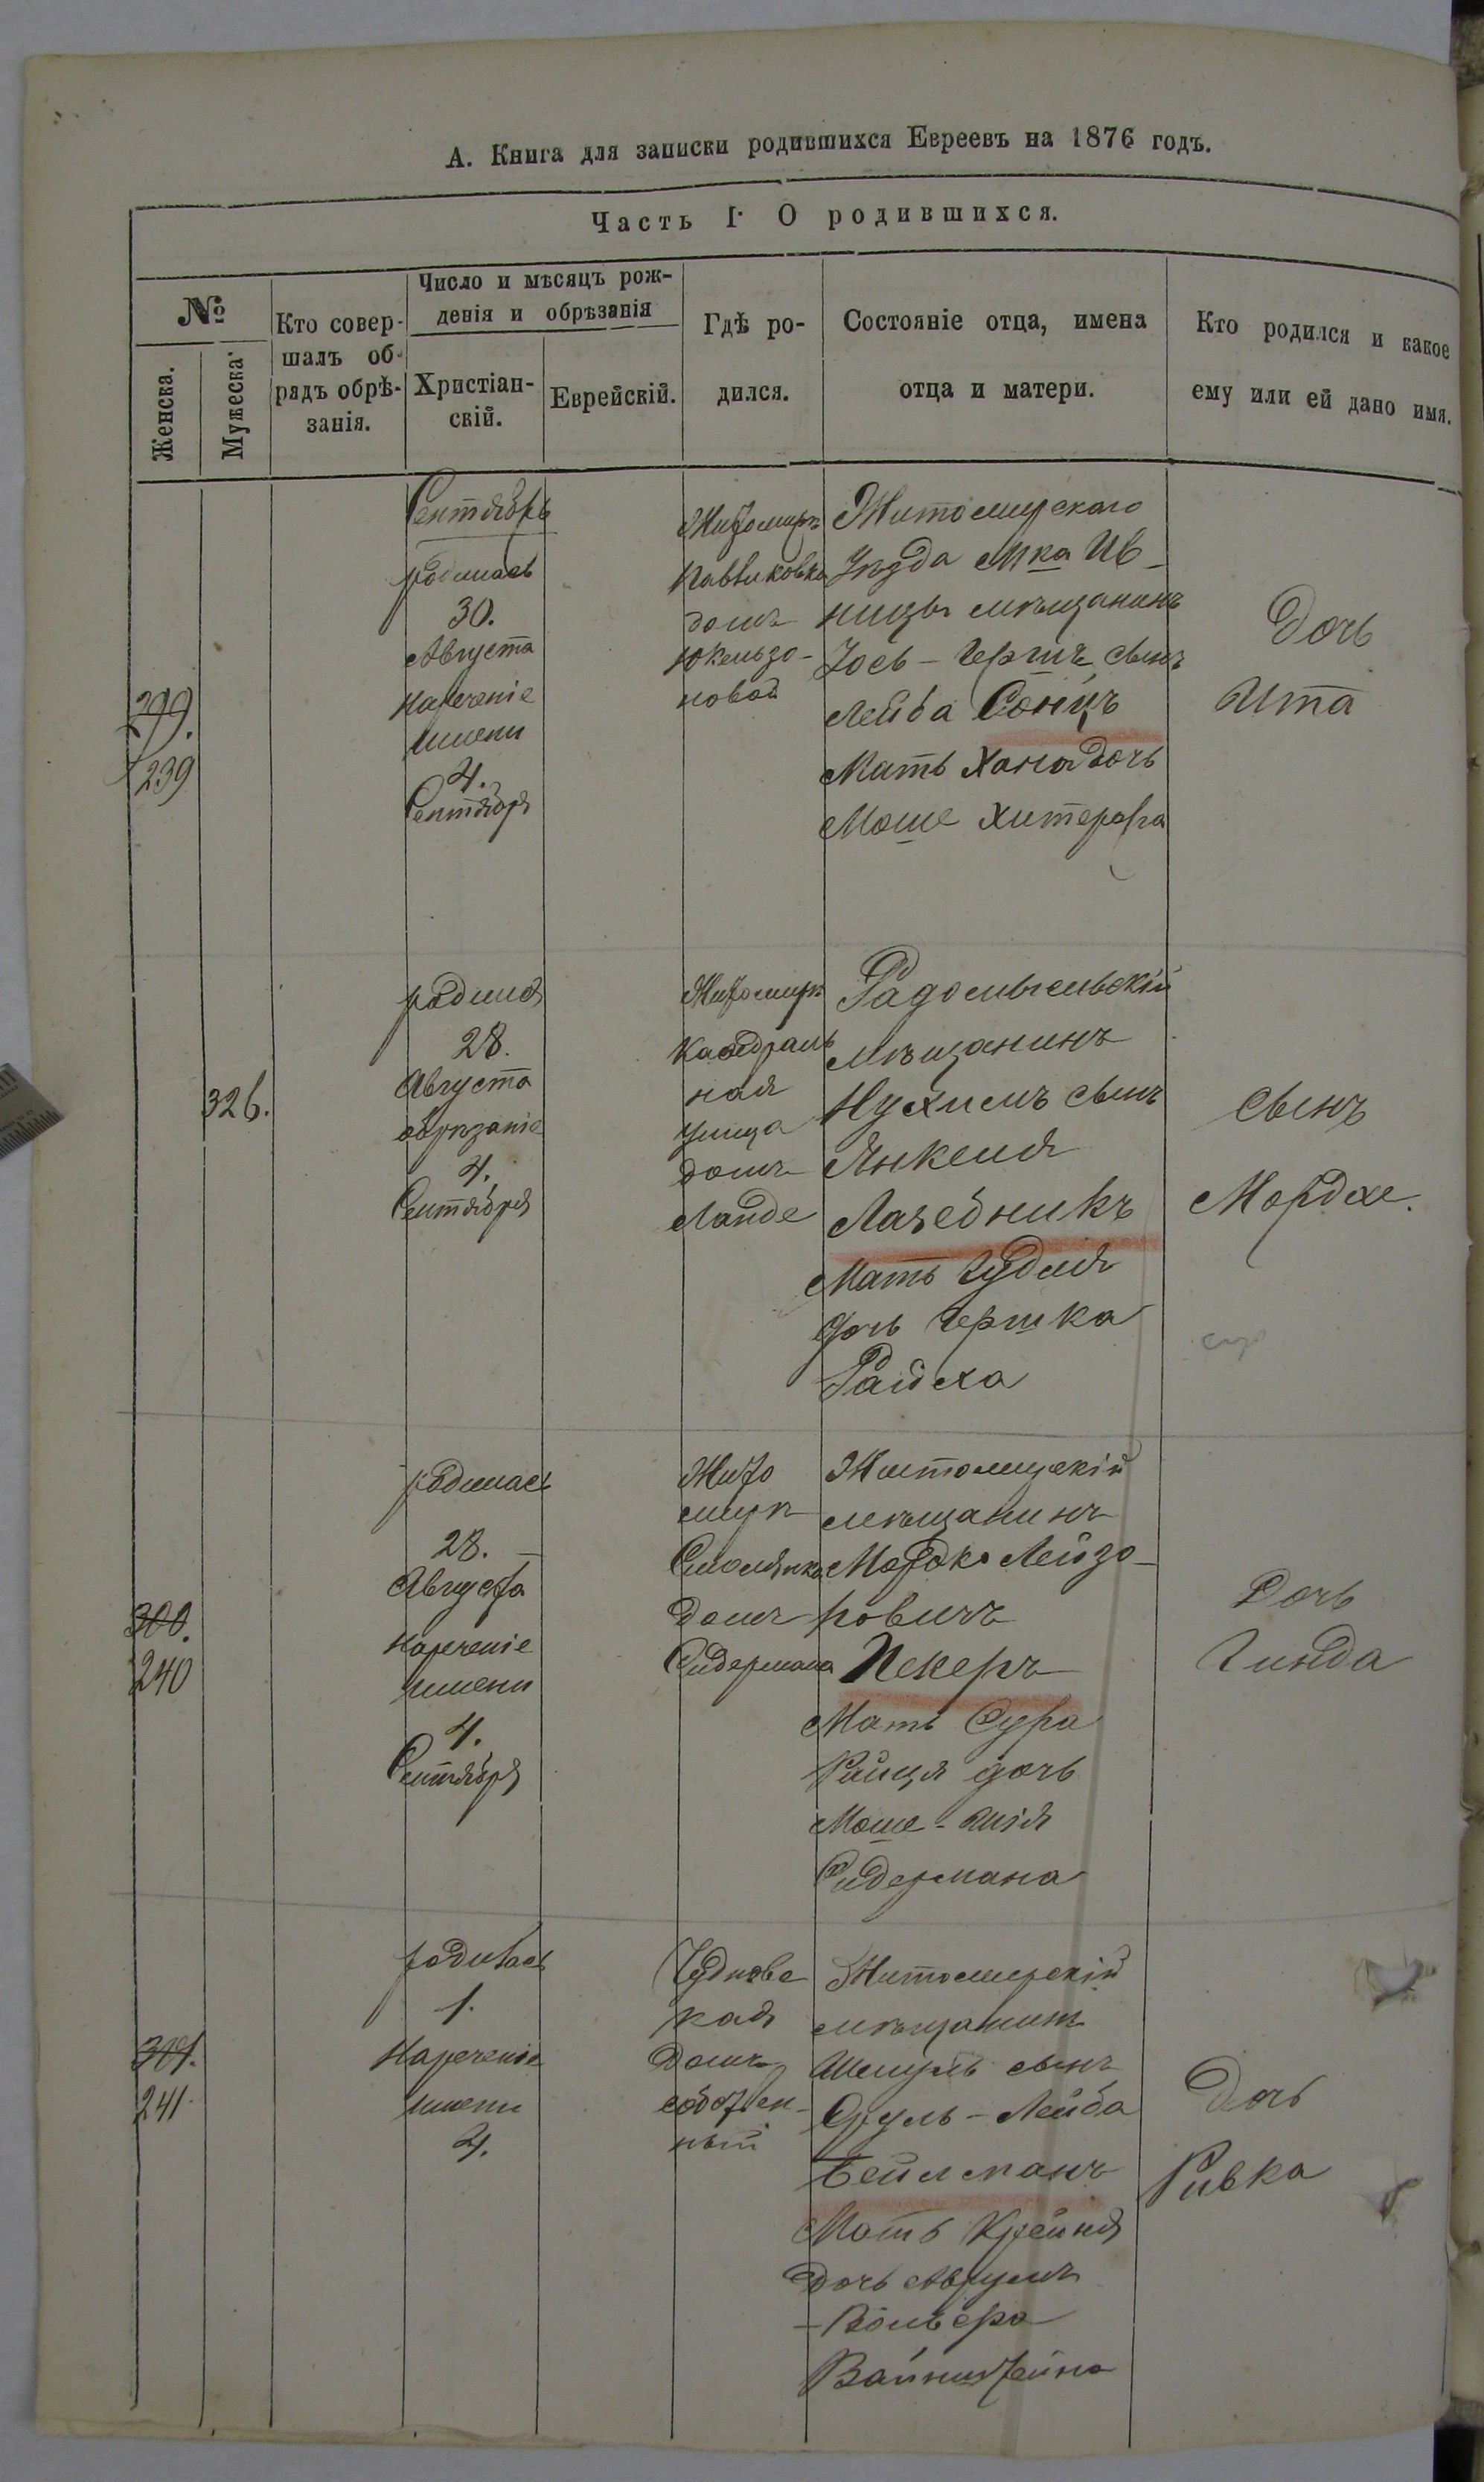 А. Книга для записки родившихся Евреевъ на 1876 годъ.
Часть I. О родившихся.
№
Женска.
Мужеска.
Кто совер-
шалъ об-
рядъ обрѣ-
занія.
Число и мѣсяцъ рож-
денія и обрѣзанія
Христіан-
скій.
Еврейскій.
Гдѣ ро-
дился.
Состояніе отца, имена
отца и матери.
Кто родился и какое
ему или ей дано имя.
299.
239
Сентябрь
родилась
30.
Августа
нареченіе
имени
4.
Сентября
Житомиръ
Павликовка
домъ
новой
Житомирскаго
Уѣзда М-ка Ив-
ницы мѣщанинъ
Іось-Гершъ сынъ
Лейба Сонцъ
Мать Хана дочь
Моше Хитерера
Дочь
Ита
326.
родился
28.
Августа
обрѣзаніе
4.
Сентября
Житомиръ
Каѳедраль
ная
улица
домъ
Ланде
Радомысльскій
мѣщанинъ
Нухимъ сынъ
Янкеля
Лазебникъ
Мать Гудля
дочь Гершка
Райха
сынъ
Мордхе.
300.
240
родилась
28.
Августа
Нареченіе
имени
4.
Сентября
Жито
миръ
Смолянка
домъ
Сидермана
Житомирскій
мѣщанинъ
Мордко Лейзо-
ровичъ
Пекеръ
Мать Сура
Райця дочь
Моше-
Сидермана
Дочь
Гинда
301.
241.
родилась
1.
Нареченіе
имени
4.
Чуднове
кая
домъ
собствен-
ный
Житомирскій
мѣщанинъ
Шмуль сынъ
Сруль-Лейба
Бейлманъ
Мать Крейня
дочь Аврумъ
-Вольфра
Вайнштейна
Дочь
Ривка